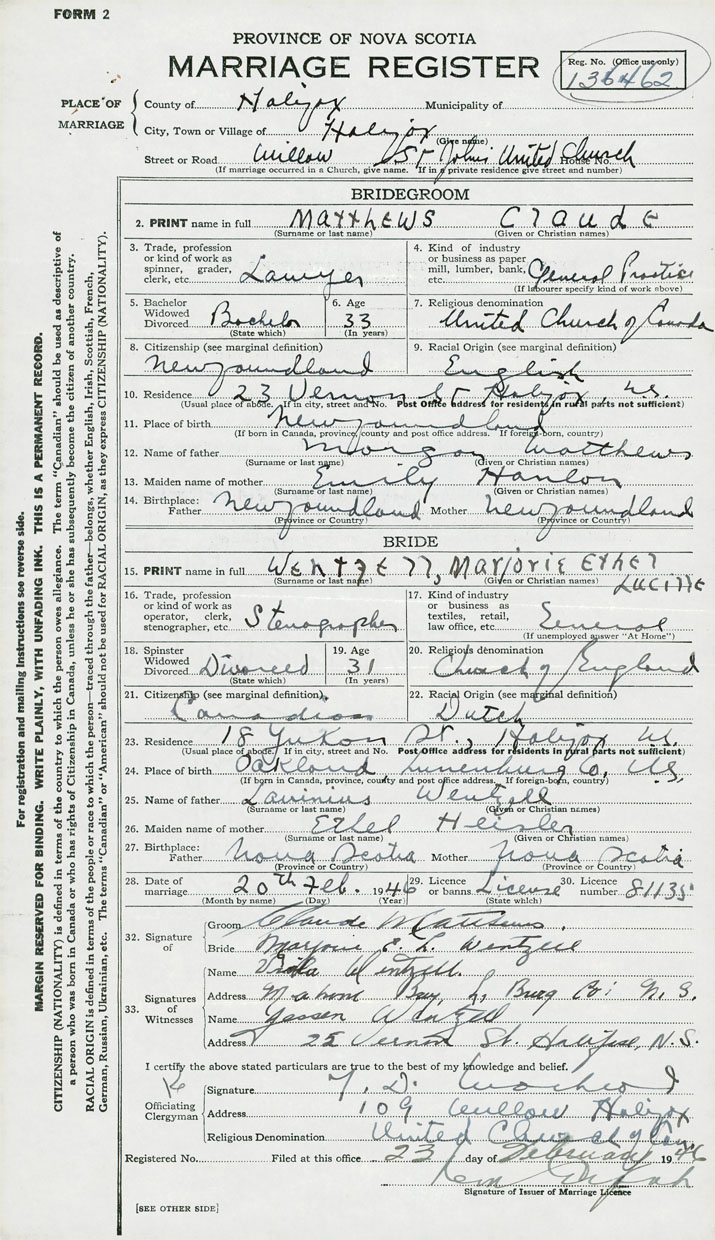 FORM 2
PROVINCE OF NOVA SCOTIA
MARRIAGE REGISTER
Reg. No. (Office use only)
136462
PLACE OF MARRIAGE
County of Halifax Municipality of
City, Town or Village of Halifax
(Give name)
Street or Road Willow St Johns United Church House No.
(If marriage occurred in a Church, give name. If in a private residence give street and number)
BRIDEGROOM
2. PRINT name in full MATTHEWS CLAUDE
(Surname or last name) (Given or Christian names)
3. Trade, profession or kind of work as spinner, grader, clerk, etc. Lawyer
4. Kind of industry or business as paper mill, lumber, bank, etc. General Practice
(If labourer specify kind of work above)
5. Bachelor Widowed Divorced Bachelor
(State which)
6. Age 33
(In years)
7. Religious denomination
United Church of Canada
8. Citizenship (see marginal definition)
Newfoundland
9. Racial Origin (see marginal definition)
English
10. Residence 23 Vernon St Halifax, N.S.
(Usual place of abode. If in city, street and No. Post Office address for residents in rural parts not sufficient)
11. Place of birth Newfoundland
(If born in Canada, province, county and post office address. If foreign-born, country)
12. Name of father Morgan Matthews
(Surname or last name) (Given or Christian names)
13. Maiden name of mother Emily Hanlon
(Surname or last name) (Given or Christian names)
14. Birthplace: Father Newfoundland Mother Newfoundland
(Province or Country) (Province or Country)
BRIDE
15. PRINT name in full WENTZELL, MARJORIE ETHEL LUCILLE
(Surname or last name) (Given or Christian names)
16. Trade, profession or kind of work as operator, clerk, stenographer, etc. Stenographer
17. Kind of industry or business as textiles, retail, law office, etc. General
(If unemployed answer "At Home")
18. Spinster Widowed Divorced Divorced
(State which)
19. Age 31
(In years)
20. Religious denomination
Church of England
21. Citizenship (see marginal definition).
Canadian
22. Racial Origin (see marginal definition)
Dutch
23. Residence 18 Yukon St., Halifax N.S.
(Usual place of abode. If in city, street and No. Post Office address for residents in rural parts not sufficient)
24. Place of birth Oakland Lunenburg Co, N.S.
(If born in Canada, province, county and post office address. If foreign-born, country)
25. Name of father Wentzell
(Surname or last name) (Given or Christian names)
26. Maiden name of mother Ethel Heisler
(Surname or last name) (Given or Christian names)
27. Birthplace: Father Nova Scotia Mother Nova Scotia
(Province or Country) (Province or Country)
28. Date of marriage 20th Feb. 1946
(Month by name) (Day) (Year)
29. Licence or banns License
(State which)
30. Licence number 81135
32. Signature of
Groom Claude Matthews.
Bride Marjorie E. L. Wentzell
33. Signatures of Witnesses
Name Wentzell.
Address Mahone Bay, L. Burg Co: N.S.
Name Wentzell
Address 25 Vernon St. Halifax, N.S.
I certify the above stated particulars are true to the best of my knowledge and belief.
Officiating Clergyman
Signature
Address 109 Willow Halifax
Religious Denomination United Church of Can
Registered No. Filed at this office 23 day of February 1946
Signature of Issuer of Marriage Licence
[SEE OTHER SIDE]
For registration and mailing instructions see reverse side.
MARGIN RESERVED FOR BINDING. WRITE PLAINLY, WITH UNFADING INK. THIS IS A PERMANENT RECORD.
CITIZENSHIP (NATIONALITY) is defined in terms of the country to which the person owes allegiance. The term "Canadian" should be used as descriptive of
a person who was born in Canada or who has rights of Citizenship in Canada, unless he or she has subsequently become the citizen of another country.
RACIAL ORIGIN is defined in terms of the people or race to which the person—traced through the father—belongs, whether English, Irish, Scottish, French,
German, Russian, Ukrainian, etc. The terms "Canadian" or "American" should not be used for RACIAL ORIGIN, as they express CITIZENSHIP (NATIONALITY).